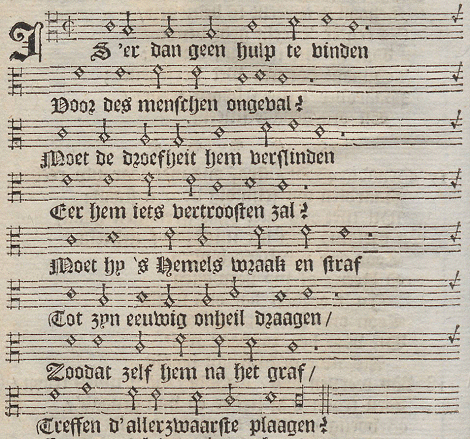 IS 'er dan geen hulp te vinden
Voor des menschen ongeval?
Moet de droefheit hem verslinden
Eer hem iets vertroosten zal?
Moet hy 's Hemels wraak en straf
Tot zyn eeuwig onheil draagen/
Zoodat zelf hem na het graf/
Treffen d'allerzwaarste plaagen?